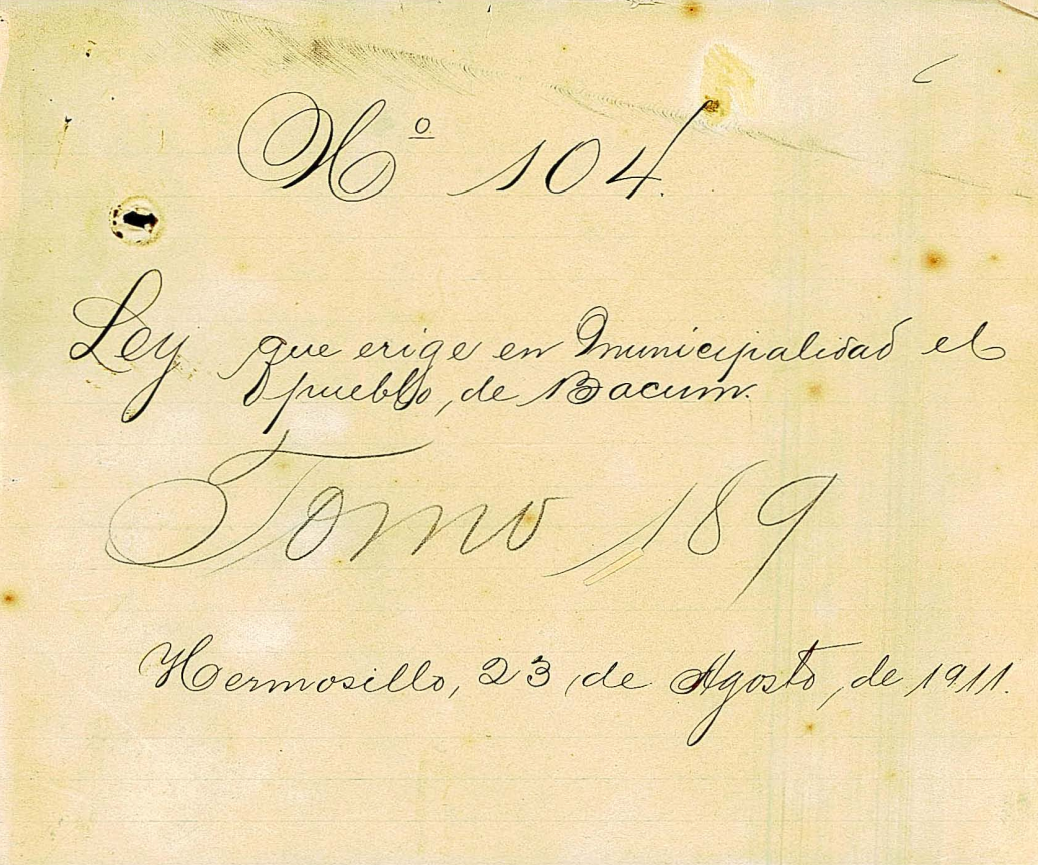 Nº 104.
Ley que erige en Municipalidad el
pueblo, de Bacum.
Tomo 189
Hermosillo, 23, de Agosto, de 1911.